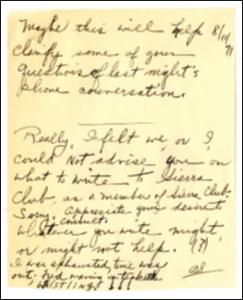 Maybe this will help 8/14/71
clarify some of your
questions of last night's
phone conversation.
Really, I felt we, or I,
could not advise you on
what to write to Sierra
Club, as a member of Sierra Club.
Sorry. Appreciate your desire to
consult.
Whatever you write might,
or might not help. (?)
I was exhausted, time was
out.